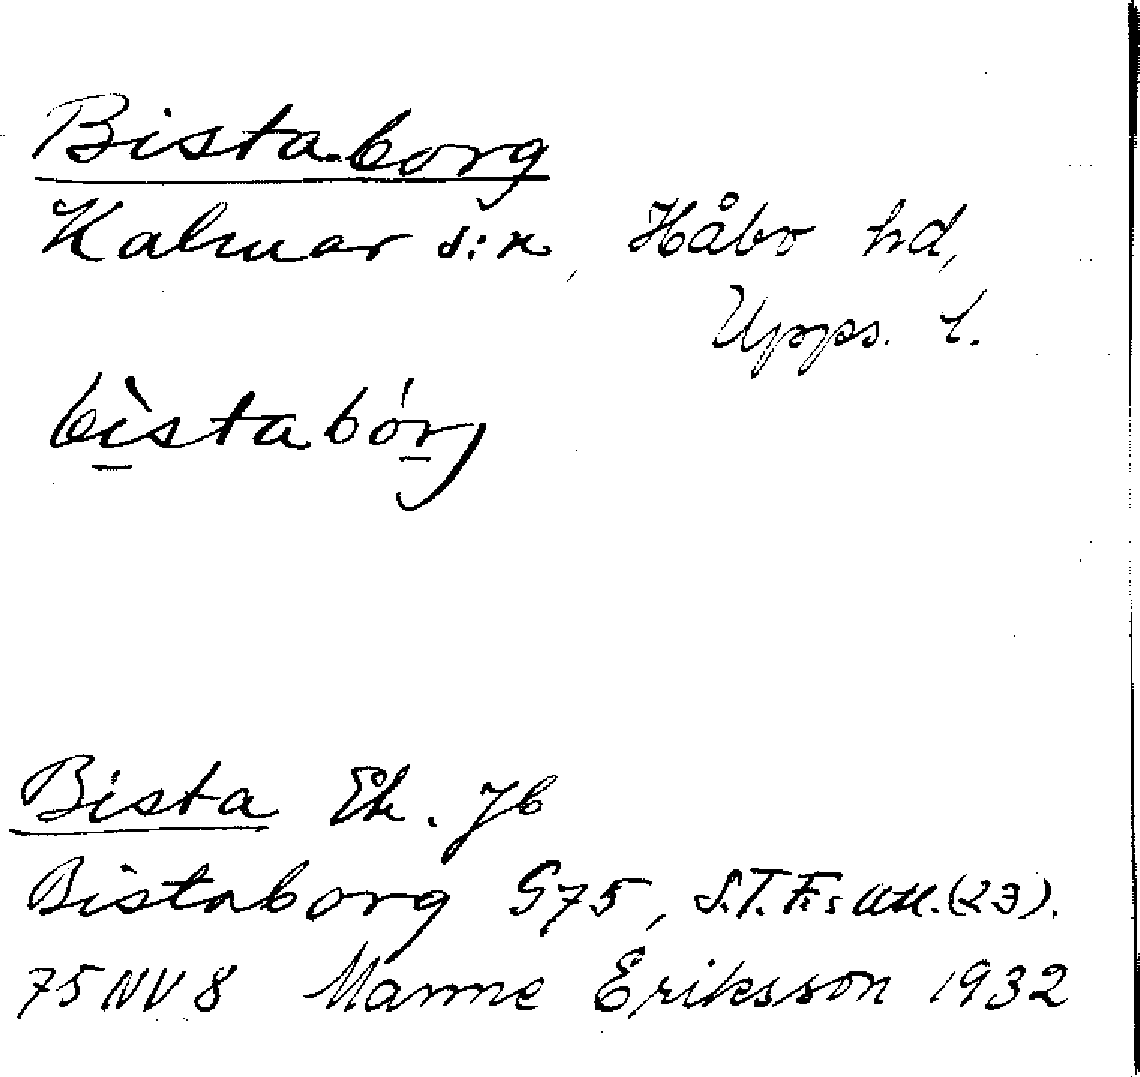 Bistaborg
Kalmar s:n, Håbo hd,
Upps. l.
bìstabórj
Bista Ek. Jb
Bistaborg G75, S.T.F:s Utl.(23).
75NV8 Manne Eriksson 1932